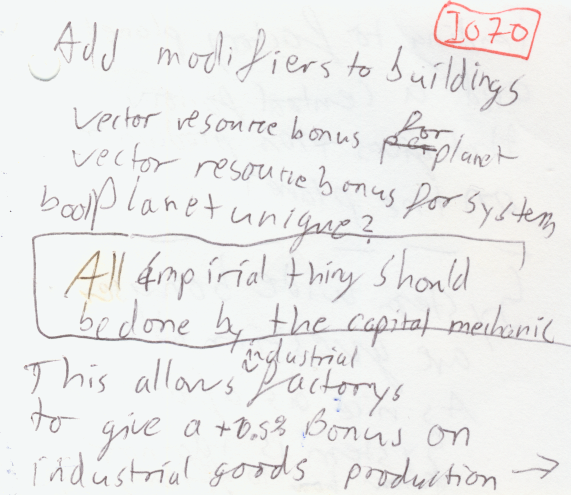 I070
Add modifiers to buildings
vector resource bonus for planet
vector resource bonus for system
bool planet unique?
All empirial thing should
be done by the capital mechanic
This allows industrial factorys
to give a +0.5% bonus on
industrial goods production →